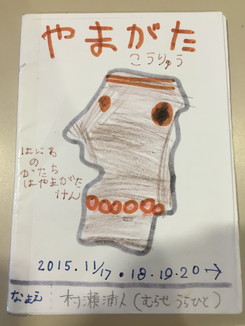 やまがた
こうりゅう
はにわ
の
かたち
はやまがた
けん
2015.11/17・18.19.20→
なまえ 村瀬浦人(むらせうらひと)